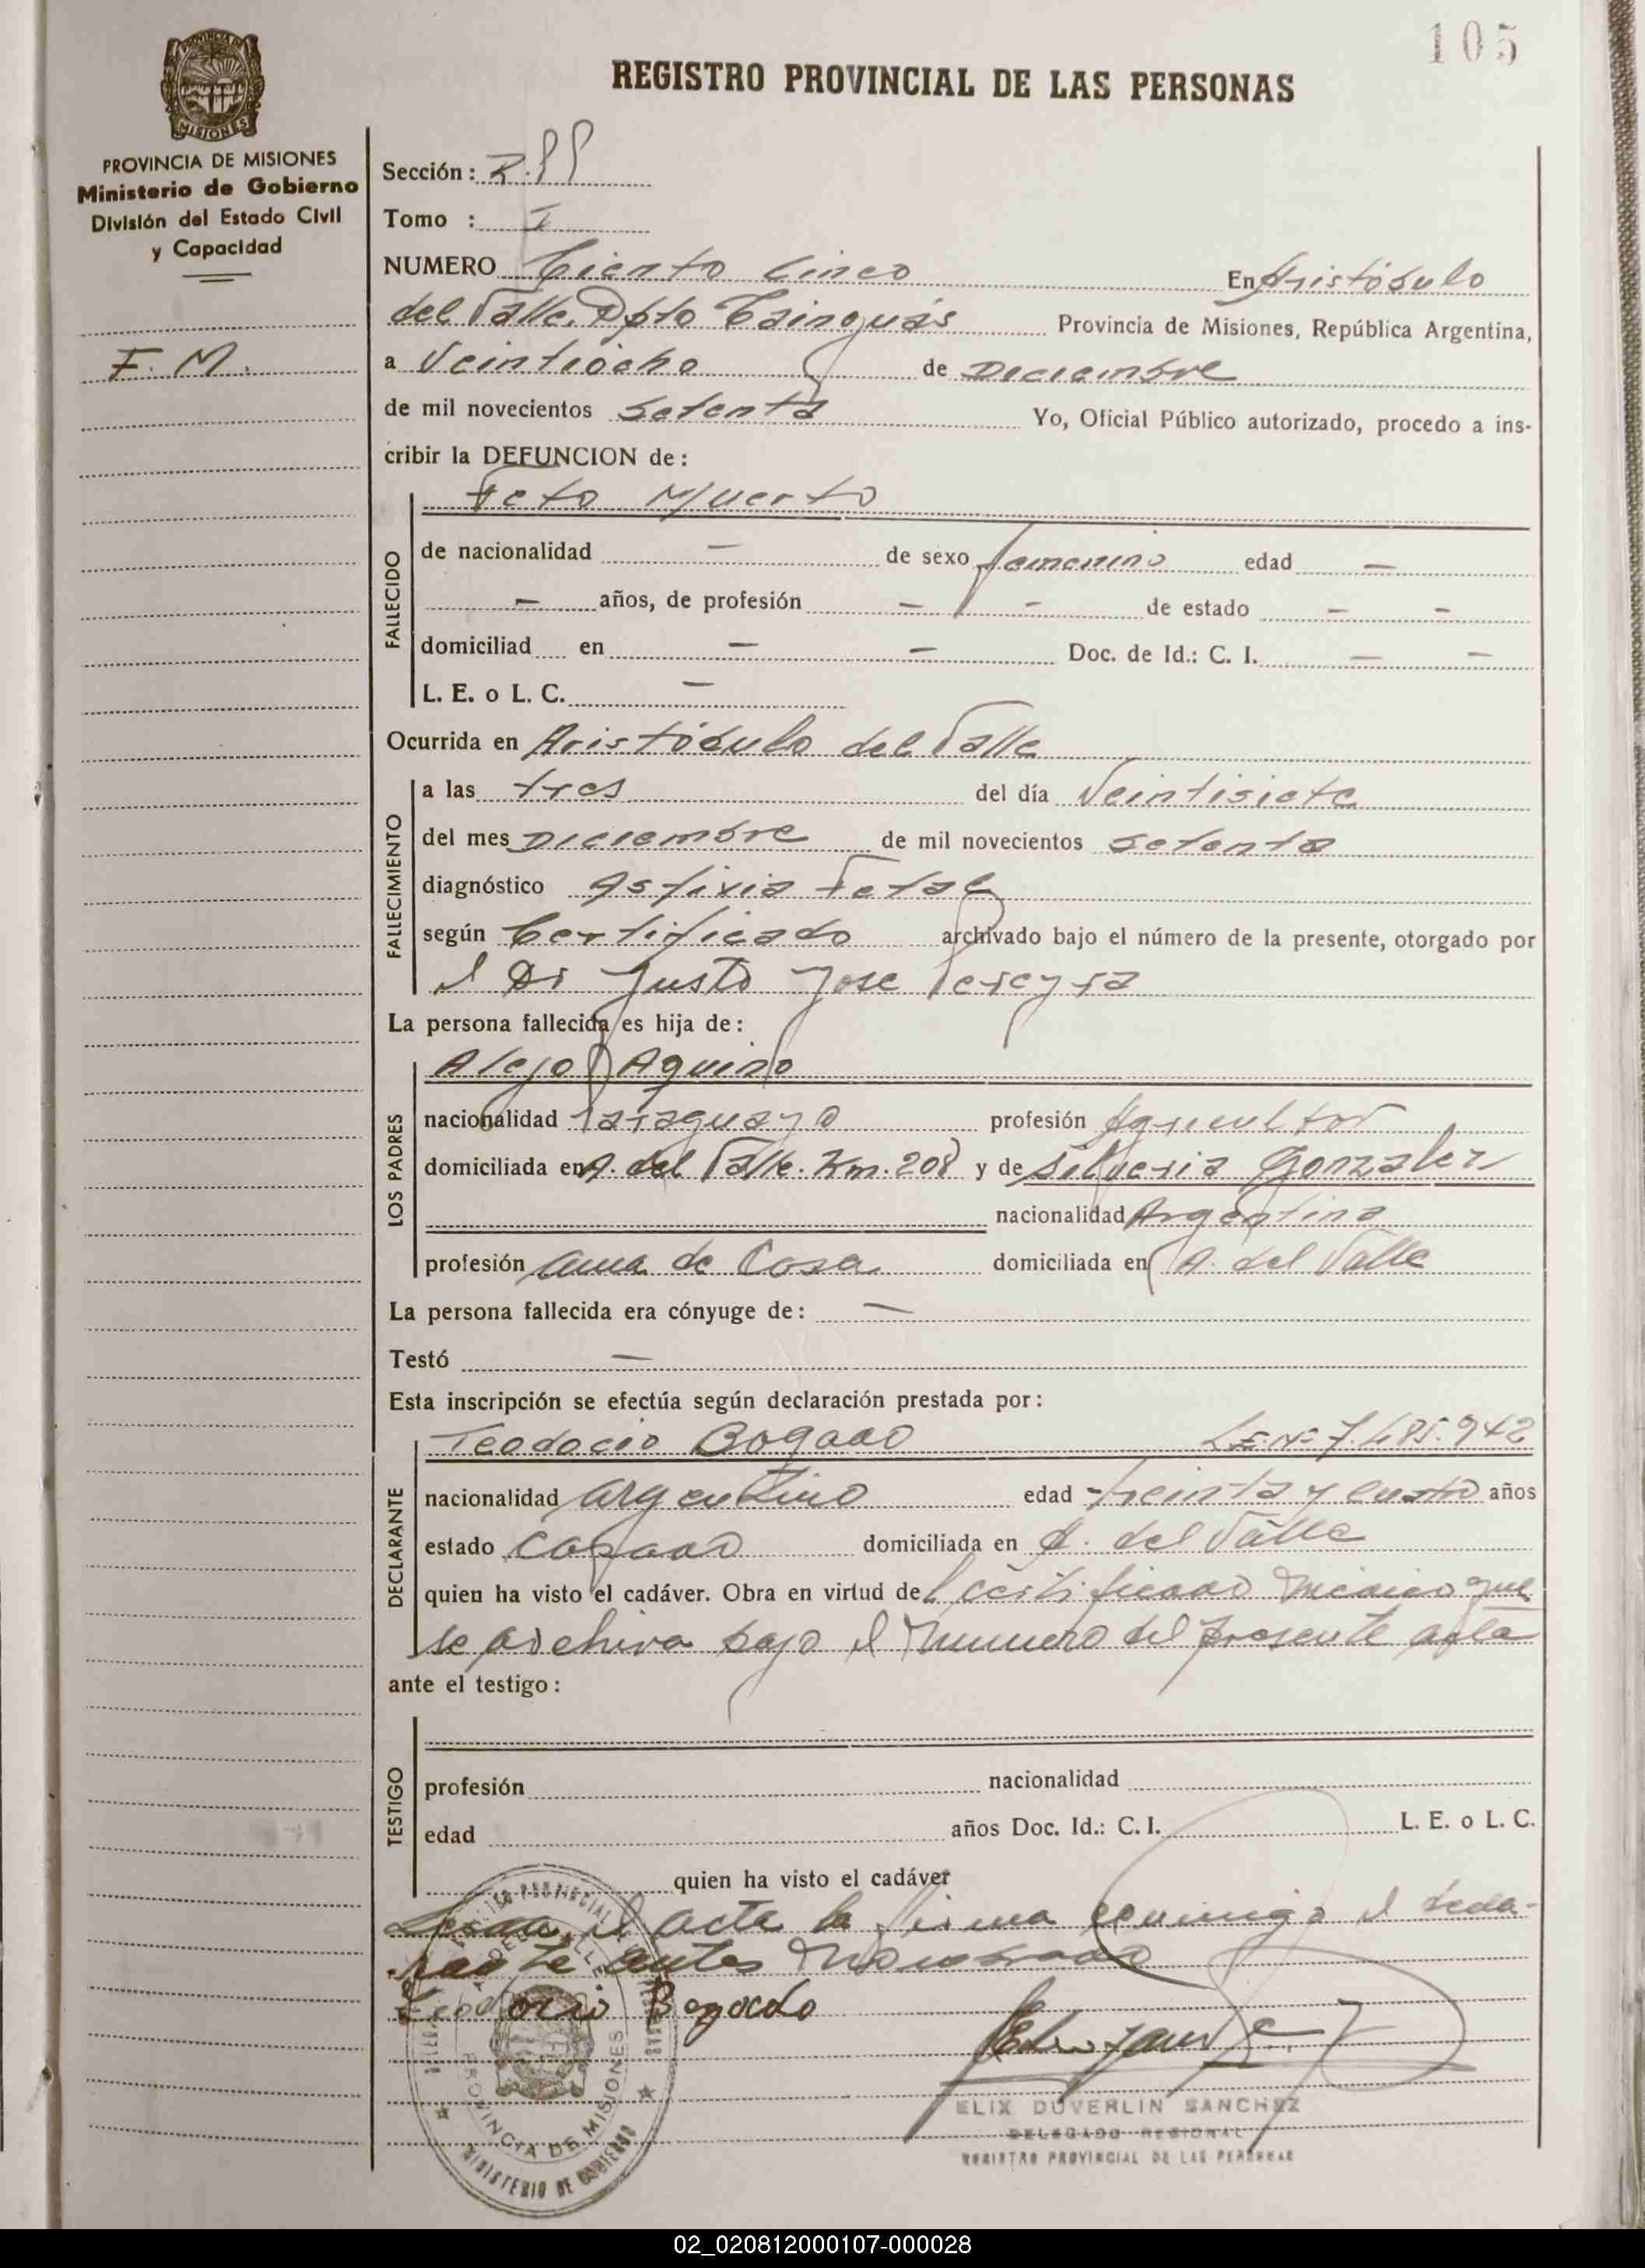 105
REGISTRO PROVINCIAL DE LAS PERSONAS
PROVINCIA DE MISIONES
Ministerio de Gobierno
División del Estado Civil
y Capacidad
F. M.
Sección:
Tomo : I
NUMERO Ciento Cinco En Aristóbulo
del Valle. Dpto Cainguás Provincia de Misiones, República Argentina,
a Veintiocho de Diciembre
de mil novecientos Setenta Yo, Oficial Público autorizado, procedo a ins-
cribir la DEFUNCION de:
Feto Muerto
FALLECIDO
de nacionalidad — de sexo femenino edad —
— años, de profesión — - de estado — -
domiciliad en — — Doc. de Id.: C. I. — —
L. E. o L. C. —
Ocurrida en Aristóbulo del Valle
FALLECIMIENTO
a las tres del día Veintisiete
del mes Diciembre de mil novecientos Setenta
diagnóstico Asfixia Fetal
según Certificado archivado bajo el número de la presente, otorgado por
el Dr Justo Jose Pereyra
La persona fallecida es hija de:
LOS PADRES
Alejo Aquino
nacionalidad Paraguayo profesión Agricultor
domiciliada en A. del Valle. Km. 208 y de Silveria Gonzalez
nacionalidad Argentina
profesión ama de Casa domiciliada en A. del Valle
La persona fallecida era cónyuge de: —
Testó —
Esta inscripción se efectúa según declaración prestada por:
DECLARANTE
Teodocio Bogado L.E. Nº 7.485.942
nacionalidad argentino edad treinta y cuatro años
estado Casado domiciliada en A. del Valle
quien ha visto el cadáver. Obra en virtud del certificado médico que
se archiva bajo el número del presente acta
ante el testigo:
TESTIGO
profesión nacionalidad
edad años Doc. Id.: C. I. L. E. o L. C.
quien ha visto el cadáver
Leida el acta la firma conmigo el decla-
rante antes nombrado
Teodocio Bogado
PROVINCIA DE MISIONES
MINISTERIO DE GOBIERNO
ELIX DUVERLIN SANCHEZ
DELEGADO REGIONAL
REGISTRO PROVINCIAL DE LAS PERSONAS
02_020812000107-000028